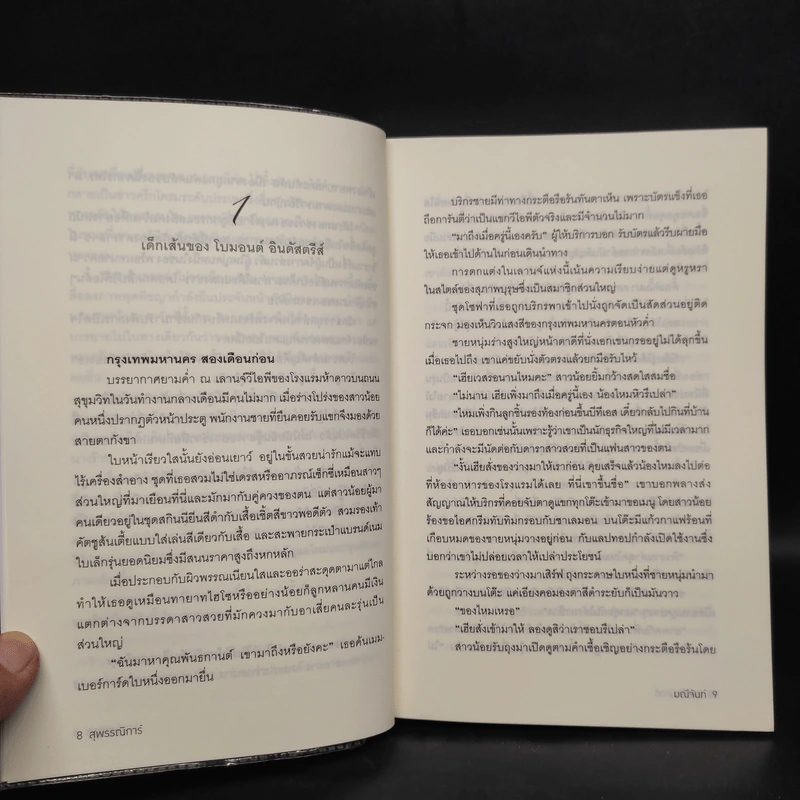 1
เด็กเส้นของ โบมอนต์ อินดัสตรีส์
กรุงเทพมหานคร สองเดือนก่อน
บรรยากาศยามค่ำ ณ เลานจ์วีไอพีของโรงแรมห้าดาวบนถนน
สุขุมวิทในวันทำงานกลางเดือนมีคนไม่มาก เมื่อร่างโปร่งของสาวน้อย
คนหนึ่งปรากฏตัวหน้าประตู พนักงานชายที่ยืนคอยรับแขกจึงมองด้วย
สายตากังขา
ใบหน้าเรียวใสนั้นยังอ่อนเยาว์ อยู่ในขั้นสวยน่ารักแม้จะแทบ
ไร้เครื่องสำอาง ชุดที่เธอสวมไม่ใช่เดรสหรืออาภรณ์เซ็กซี่เหมือนสาวๆ
ส่วนใหญ่ที่มาเยือนที่นี่และมักมากับคู่ควงของตน แต่สาวน้อยผู้มา
คนเดียวอยู่ในชุดสกินนียีนสีดำกับเสื้อเชิ้ตสีขาวพอดีตัว สวมรองเท้า
คัตชูส้นเตี้ยแบบใส่เล่นสีเดียวกับเสื้อ และสะพายกระเป๋าแบรนด์เนม
ใบเล็กรุ่นยอดนิยมซึ่งมีสนนราคาสูงถึงหกหลัก
เมื่อประกอบกับผิวพรรณเนียนใสและออร่าสะดุดตามาแต่ไกล
ทำให้เธอดูเหมือนทายาทไฮโซหรืออย่างน้อยก็ลูกหลานคนมีเงิน
แตกต่างจากบรรดาสาวสวยที่มักควงมากับอาเสี่ยคนละรุ่นเป็น
ส่วนใหญ่
“ฉันมาหาคุณพันธกานต์ เขามาถึงหรือยังคะ” เธอค้นเมม-
เบอร์การ์ดใบหนึ่งออกมายื่น
8 สุพรรณิการ์
บริกรชายมีท่าทางกระตือรือร้นทันตาเห็น เพราะบัตรแข็งที่เธอ
ถือการันตีว่าเป็นแขกวีไอพีตัวจริงและมีจำนวนไม่มาก
“มาถึงเมื่อครู่นี้เองครับ” ผู้ให้บริการบอก รับบัตรแล้วรีบผายมือ
ให้เธอเข้าไปด้านในก่อนเดินนำทาง
การตกแต่งในเลานจ์แห่งนี้เน้นความเรียบง่ายแต่ดูหรูหรา
ในสไตล์ของสุภาพบุรุษซึ่งเป็นสมาชิกส่วนใหญ่
ชุดโซฟาที่เธอถูกบริกรพาเข้าไปนั่งถูกจัดเป็นสัดส่วนอยู่ติด
กระจก มองเห็นวิวแสงสีของกรุงเทพมหานครตอนหัวค่ำ
ชายหนุ่มร่างสูงใหญ่หน้าตาดีที่นั่งเอกเขนกรออยู่ไม่ได้ลุกขึ้น
เมื่อเธอไปถึง เขาแค่ขยับนั่งตัวตรงแล้วยกมือรับไหว้
“เฮียเวสรอนานไหมคะ” สาวน้อยยิ้มกว้างสดใสสมชื่อ
“ไม่นาน เฮียเพิ่งมาถึงเมื่อครู่นี้เอง น้องไหมหิวรึเปล่า”
“ไหมเพิ่งกินลูกชิ้นรองท้องก่อนขึ้นบีทีเอส เดี๋ยวกลับไปกินที่บ้าน
ก็ได้ค่ะ” เธอบอกเช่นนั้นเพราะรู้ว่าเขาเป็นนักธุรกิจใหญ่ที่ไม่มีเวลามาก
และกำลังจะมีนัดต่อกับดาราสาวสวยที่เป็นแฟนสาวของตน
“งั้นเฮียสั่งของว่างมาให้เราก่อน คุยเสร็จแล้วน้องไหมลงไปต่อ
ที่ห้องอาหารของโรงแรมได้เลย ที่นี่เขาขึ้นชื่อ” เขาบอกพลางส่ง
สัญญาณให้บริกรที่คอยจับตาดูแขกทุกโต๊ะเข้ามาขอเมนู โดยสาวน้อย
ร้องขอไอศกรีมทับทิมกรอบกับชาเลมอน บนโต๊ะมีแก้วกาแฟร้อนที่
เกือบหมดของชายหนุ่มวางอยู่ก่อน กับแลปทอปกำลังเปิดใช้งานซึ่ง
บอกว่าเขาไม่ปล่อยเวลาให้เปล่าประโยชน์
ระหว่างรอของว่างมาเสิร์ฟ ถุงกระดาษใบหนึ่งที่ชายหนุ่มนำมา
ด้วยถูกวางบนโต๊ะ แค่เอียงคอมองตาสีดำระยับก็เป็นมันวาว
“ของไหมเหรอ”
“เฮียสั่งเข้ามาให้ ลองดูสิว่าเราชอบรึเปล่า”
สาวน้อยรับถุงมาเปิดดูตามคำเชื้อเชิญอย่างกระตือรือร้นโดย
มณีจันท์ 9